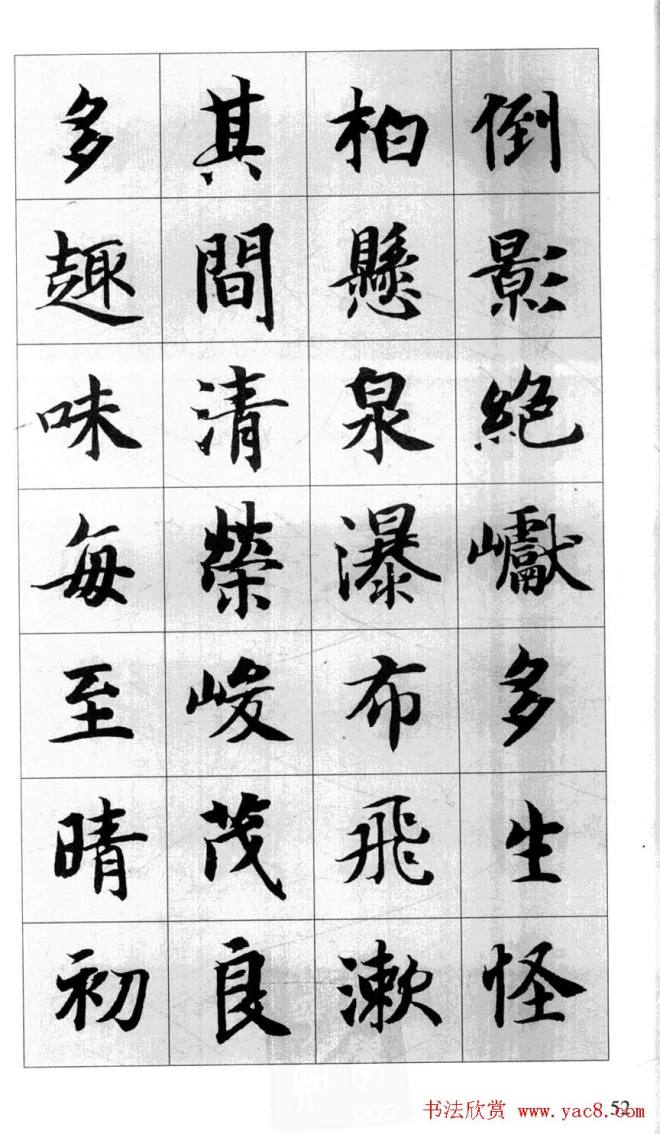 倒影絶巘多生怪
柏懸泉瀑布飛漱
其間清榮峻茂良
多趣味每至晴初
52
书法欣赏 www.yac8.com